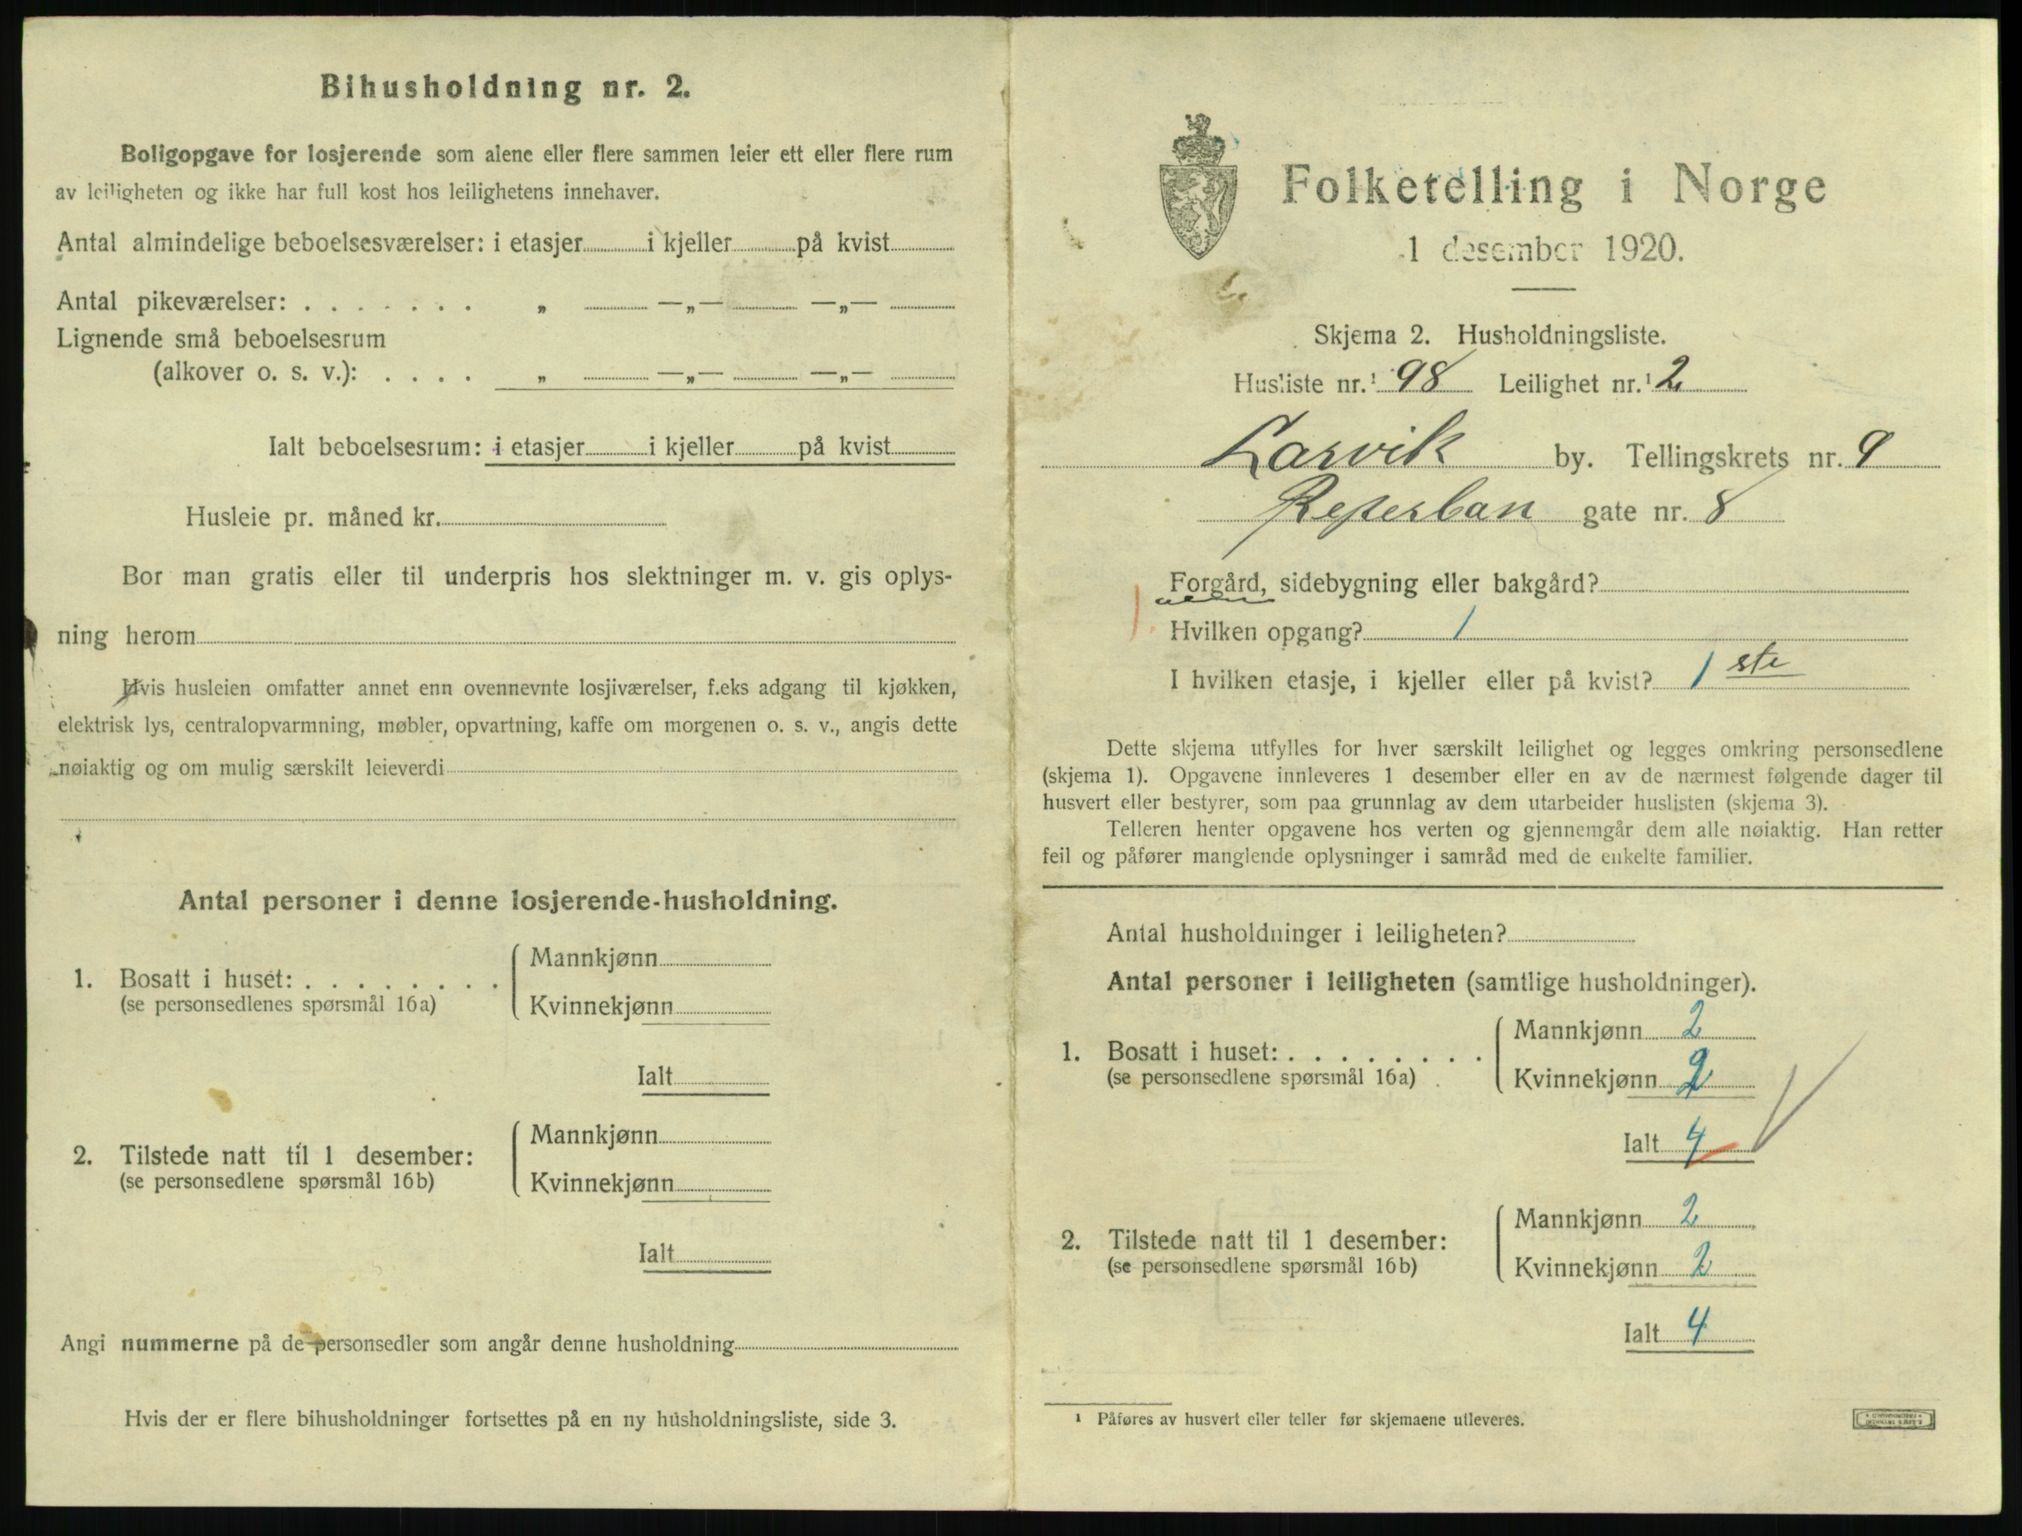 Bihusholdning nr. 2.
Boligopgave for losjerende som alene eller flere sammen leier ett eller flere rum
av leiligheten og ikke har full kost hos leilighetens innehaver.
Antal almindelige beboelsesværelser: i etasjer i kjeller på kvist
Antal pikeværelser: . . . . . . . „ —„— —„—
Lignende små beboelsesrum
(alkover o. s. v.): . . . . „ —„— —„—
Ialt beboelsesrum: i etasjer i kjeller på kvist
Husleie pr. måned kr.
Bor man gratis eller til underpris hos slektninger m. v. gis oplys-
ning herom
Hvis husleien omfatter annet enn ovennevnte losjiværelser, f.eks adgang til kjøkken,
elektrisk lys, centralopvarmning, møbler, opvartning, kaffe om morgenen o. s. v., angis dette
nøiaktig og om mulig særskilt leieverdi
Antal personer i denne losjerende-husholdning.
1. Bosatt i huset: . . . . . . . . Mannkjønn
(se personsedlenes spørsmål 16a) Kvinnekjønn
Ialt
2. Tilstede natt til 1 desember: Mannkjønn
(se personsedlene spørsmål 16b) Kvinnekjønn
Ialt
Angi nummerne på de personsedler som angår denne husholdning
Hvis der er flere bihusholdninger fortsettes på en ny husholdningsliste, side 3.
Folketelling i Norge
1 desember 1920.
Skjema 2. Husholdningsliste.
Husliste nr.¹ 98 Leilighet nr.¹ 2
Larvik by. Tellingskrets nr. 9
Reperban gate nr. 8
Forgård, sidebygning eller bakgård?
Hvilken opgang? 1
I hvilken etasje, i kjeller eller på kvist? 1 ste
Dette skjema utfylles for hver særskilt leilighet og legges omkring personsedlene
(skjema 1). Opgavene innleveres 1 desember eller en av de nærmest følgende dager til
husvert eller bestyrer, som paa grunnlag av dem utarbeider huslisten (skjema 3).
Telleren henter opgavene hos verten og gjennemgår dem alle nøiaktig. Han retter
feil og påfører manglende oplysninger i samråd med de enkelte familier.
Antal husholdninger i leiligheten?
Antal personer i leiligheten (samtlige husholdninger).
1. Bosatt i huset: . . . . . . . . Mannkjønn 2
(se personsedlene spørsmål 16a) Kvinnekjønn 2
Ialt 4
2. Tilstede natt til 1 desember: Mannkjønn 2
(se personsedlene spørsmål 16b) Kvinnekjønn 2
Ialt 4
¹ Påføres av husvert eller teller før skjemaene utleveres.